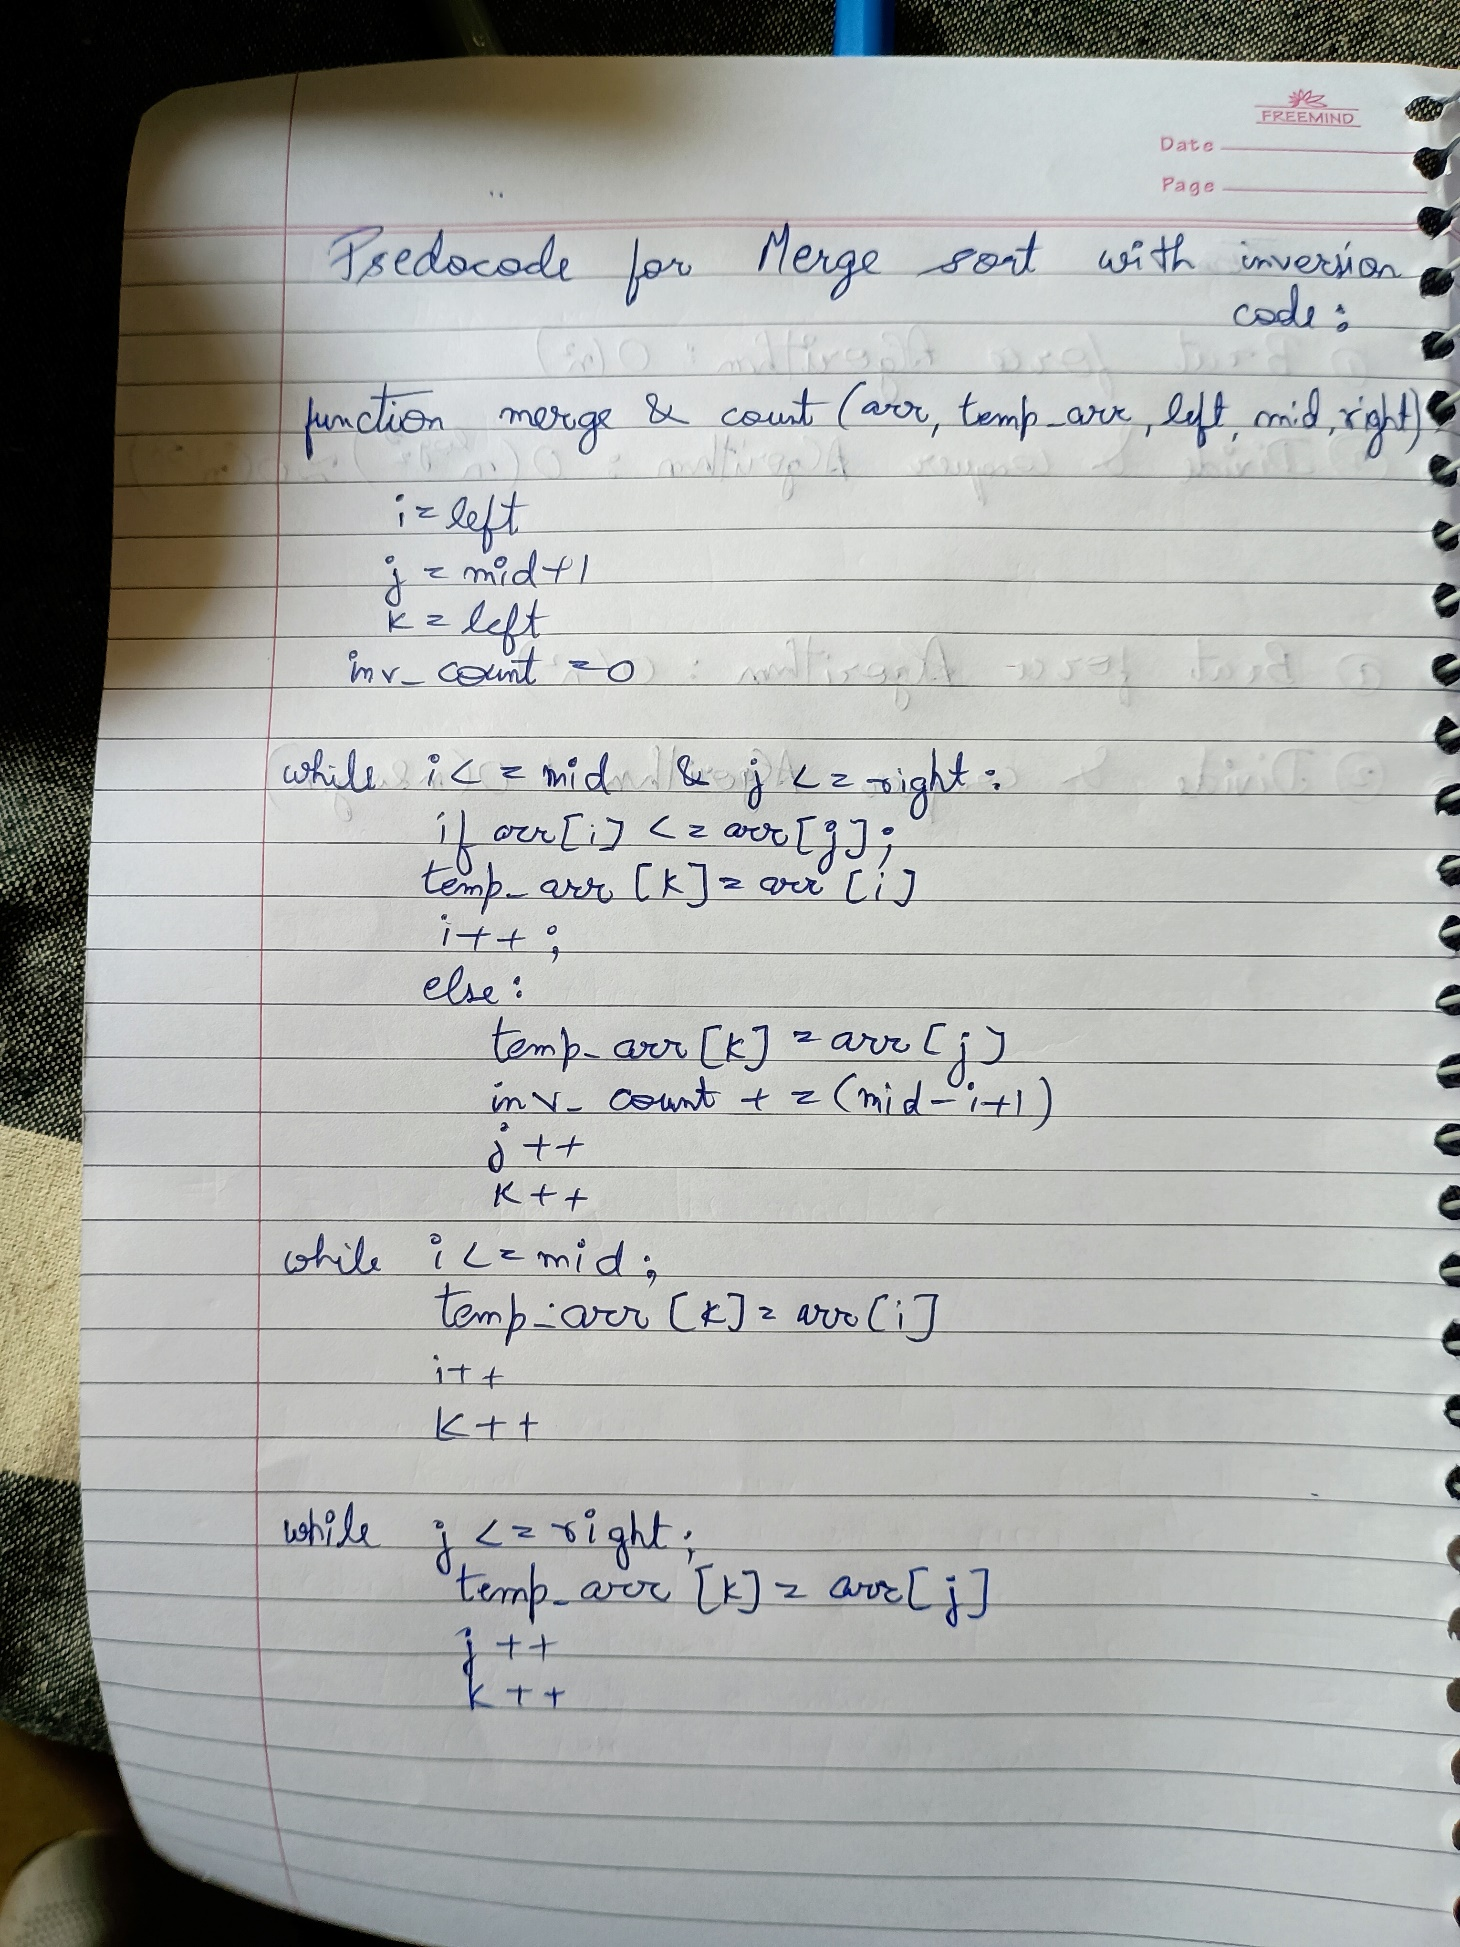 FREEMIND
Date
Page
Psedocode for Merge sort with inversion
code :
function merge & count (arr, temp_arr, left, mid, right)
i = left
j = mid+1
k = left
inv_count = 0
while i <= mid & j <= right :
if arr[i] <= arr[j];
temp_arr [k] = arr [i]
i++ ;
else :
temp_arr [k] = arr [j]
inv_count += (mid-i+1)
j ++
k ++
while i <= mid ;
temp_arr [k] = arr [i]
i++
k++
while j <= right ;
temp_arr [k] = arr [j]
j ++
k ++